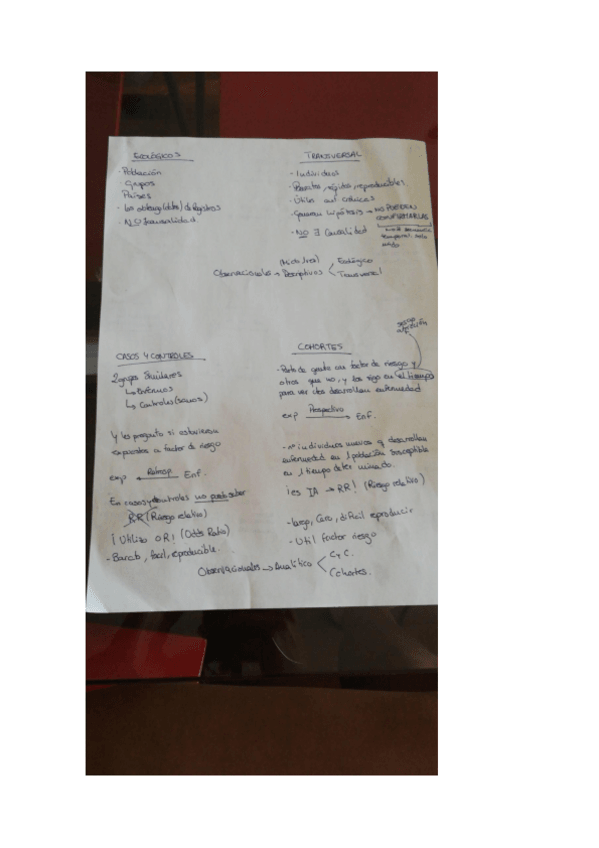 ECOLÓGICOS
- Población
- Grupos
Países
- los obtengo (datos) de Registros
- NO causalidad
TRANSVERSAL
- Individuos
- Baratos, rápidos, reproducibles.
- Útiles enf crónicas
- Generan hipótesis → NO PUEDEN CONFIRMARLAS
- NO ∃ Causalidad
Ecológico
Observacionales → Descriptivos < Transversal
CASOS Y CONTROLES
2 grupos similares
↳ Enfermos
↳ Controles (sanos)
Y les pregunto si estuvieron
expuestos a factor de riesgo
exp ← Retrosp Enf.
En casos y controles no puedo saber
RR! (Riesgo relativo)
¡Utilizo OR! (Odds Ratio)
- Barato, fácil, reproducible.
COHORTES
- Parto de gente con factor de riesgo y
otros que no, y los sigo en el tiempo
para ver si desarrollan enfermedad
exp Prospectivo → Enf.
- nº individuos nuevos q desarrollan
enfermedad en 1 población susceptible
en 1 tiempo determinado.
¡es IA → RR! (Riesgo relativo)
- largo, Caro, difícil reproducir
- Util factor riesgo
C y C.
Observacionales → Analítico < Cohortes.